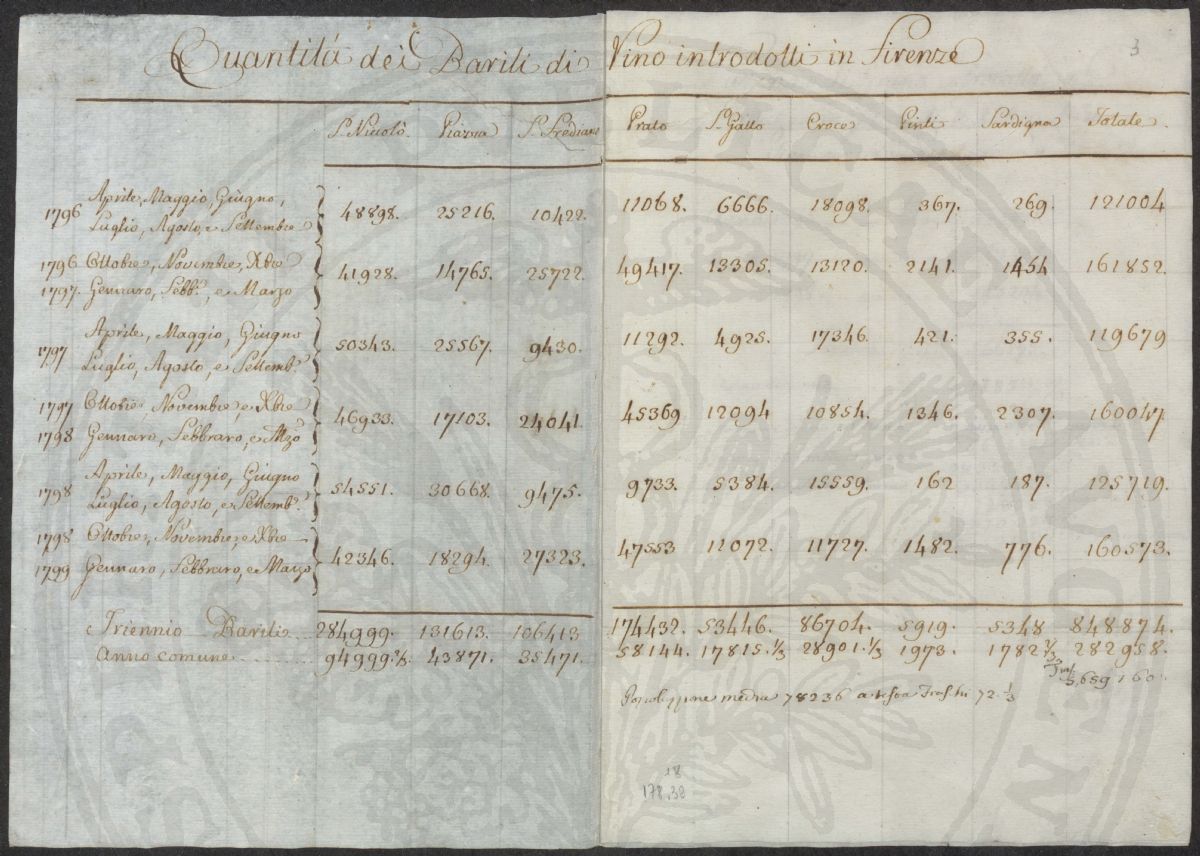 Quantità dei Barili di Vino introdotti in Firenze
3
S. Niccolò Piazza S. Frediano Prato S. Gallo Croce Pinti Sardigna Totale
1796 Aprile, Maggio, Giugno,
Luglio, Agosto, e Settembre 48898. 25216. 10422. 11068. 6666. 18098. 367. 269. 121004
1796 Ottobre, Novembre, Xbre
1797. Gennaro, Febb.º, e Marzo 41928. 14765. 25722. 49417. 13305. 13120. 2141. 1454 161852.
Aprile, Maggio, Giugno
1797 Luglio, Agosto, e Settemb.e 50343. 25567. 9430. 11292. 4925. 17346. 421. 355. 119679
1797 Ottobre Novembre e Xbre
1798 Gennaro, Febbraro, e Mzo 46933. 17103. 24041. 45369 12094 10854. 1346. 2307. 160047
Aprile, Maggio, Giugno
1798 Luglio, Agosto, e Settemb.e 54551. 30668. 9475. 9733. 5384. 15559. 162 187. 125719.
1798 Ottobre, Novembre, e Xbre
1799 Gennaro, Febbraro, e Marzo 42346. 18294. 27323. 47553 11072. 11727. 1482. 776. 160573.
Triennio Barili 284999. 131613. 106413 174432. 53446. 86704. 5919. 5348 848874.
Anno comune 94999.⅔. 43871. 35471. 58144. 17815.⅓ 28901.⅓ 1973. 1782⅔ 282958.
5,659160.
Popolazione media 78236 a testa Fiaschi 72 ⅓
18
178.38